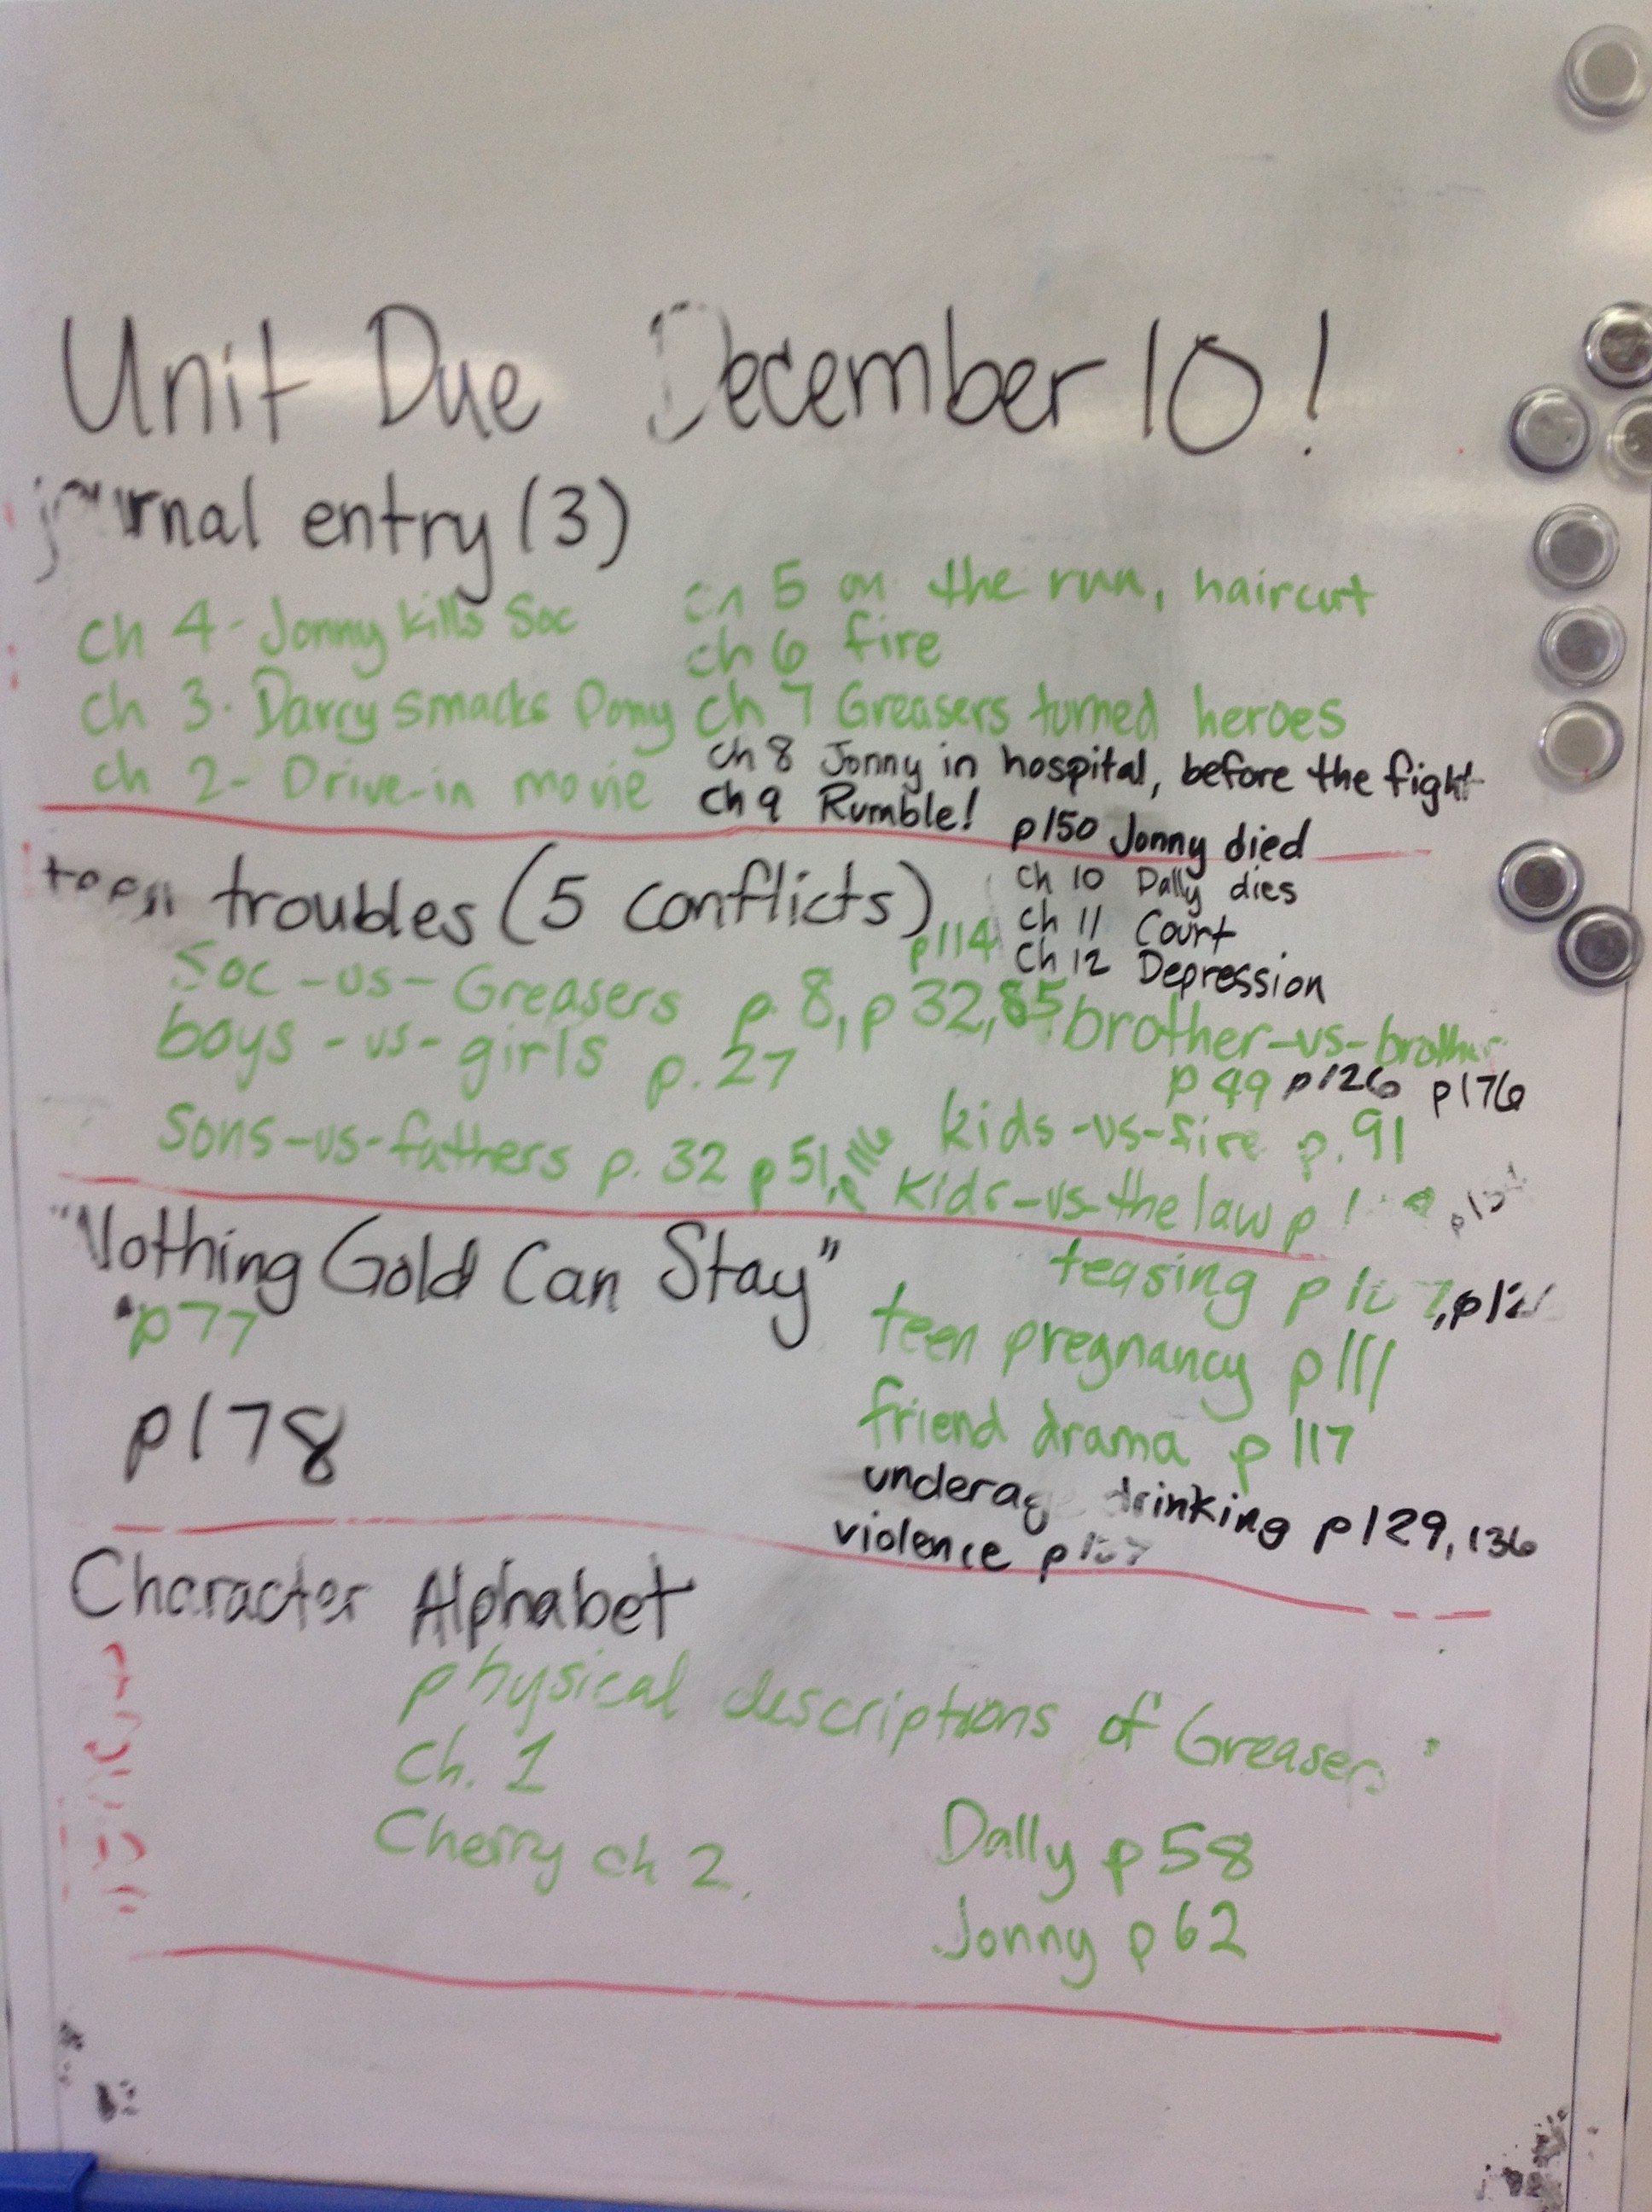 Unit Due December 10!
journal entry (3)
ch 4 - Jonny kills Soc
ch 3 - Darry smacks Pony
ch 2 - Drive-in movie
ch 5 on the run, haircut
ch 6 fire
ch 7 Greasers turned heroes
ch 8 Jonny in hospital, before the fight
ch 9 Rumble!
p150 Jonny died
ch 10 Dally dies
ch 11 Court
ch 12 Depression
teen troubles (5 conflicts)
p114
Soc -vs- Greasers p. 8, p 32, 85
boys -vs- girls p. 27
Sons-vs-fathers p. 32 p 51, p 116
brother-vs-brother
p 49 p126 p176
kids-vs-fire p. 91
kids-vs-the law p
teasing p 107,
teen pregnancy p111
friend drama p 117
underage drinking p129, 136
violence
"Nothing Gold Can Stay"
p77
p178
Character Alphabet
physical descriptions of Greasers
Ch. 1
Cherry ch 2.
Dally p58
Jonny p62